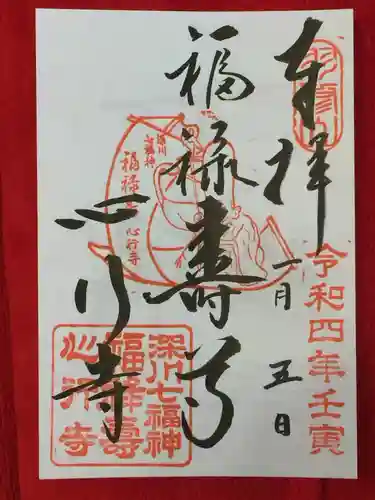 奉拝
令和四年壬寅
一月五日
福禄寿尊
心行寺
深川
七福神
福禄寿
心行寺
深川七福神
福禄壽
心行寺